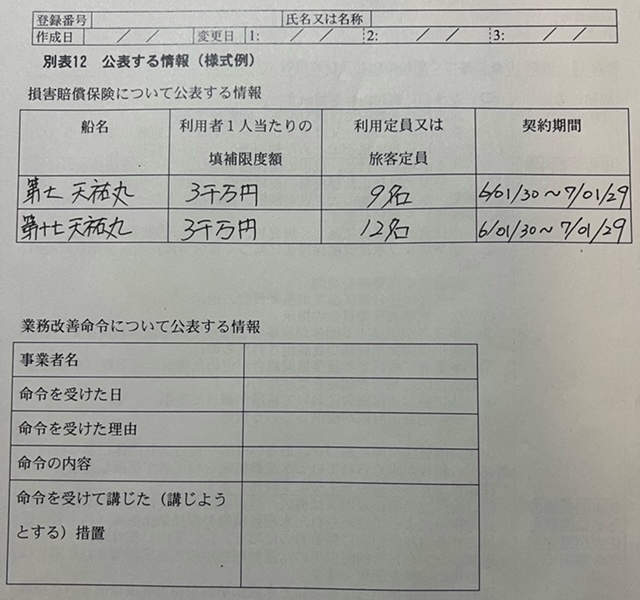 登録番号 氏名又は名称
作成日 / / 変更日 1: / / 2: / / 3: / /
別表12 公表する情報（様式例）
損害賠償保険について公表する情報
船名 利用者1人当たりの填補限度額 利用定員又は旅客定員 契約期間
第七 天祐丸 3千万円 9名 6/01/30~7/01/29
第十七天祐丸 3千万円 12名 6/01/30~7/01/29
業務改善命令について公表する情報
事業者名
命令を受けた日
命令を受けた理由
命令の内容
命令を受けて講じた（講じよう
とする）措置